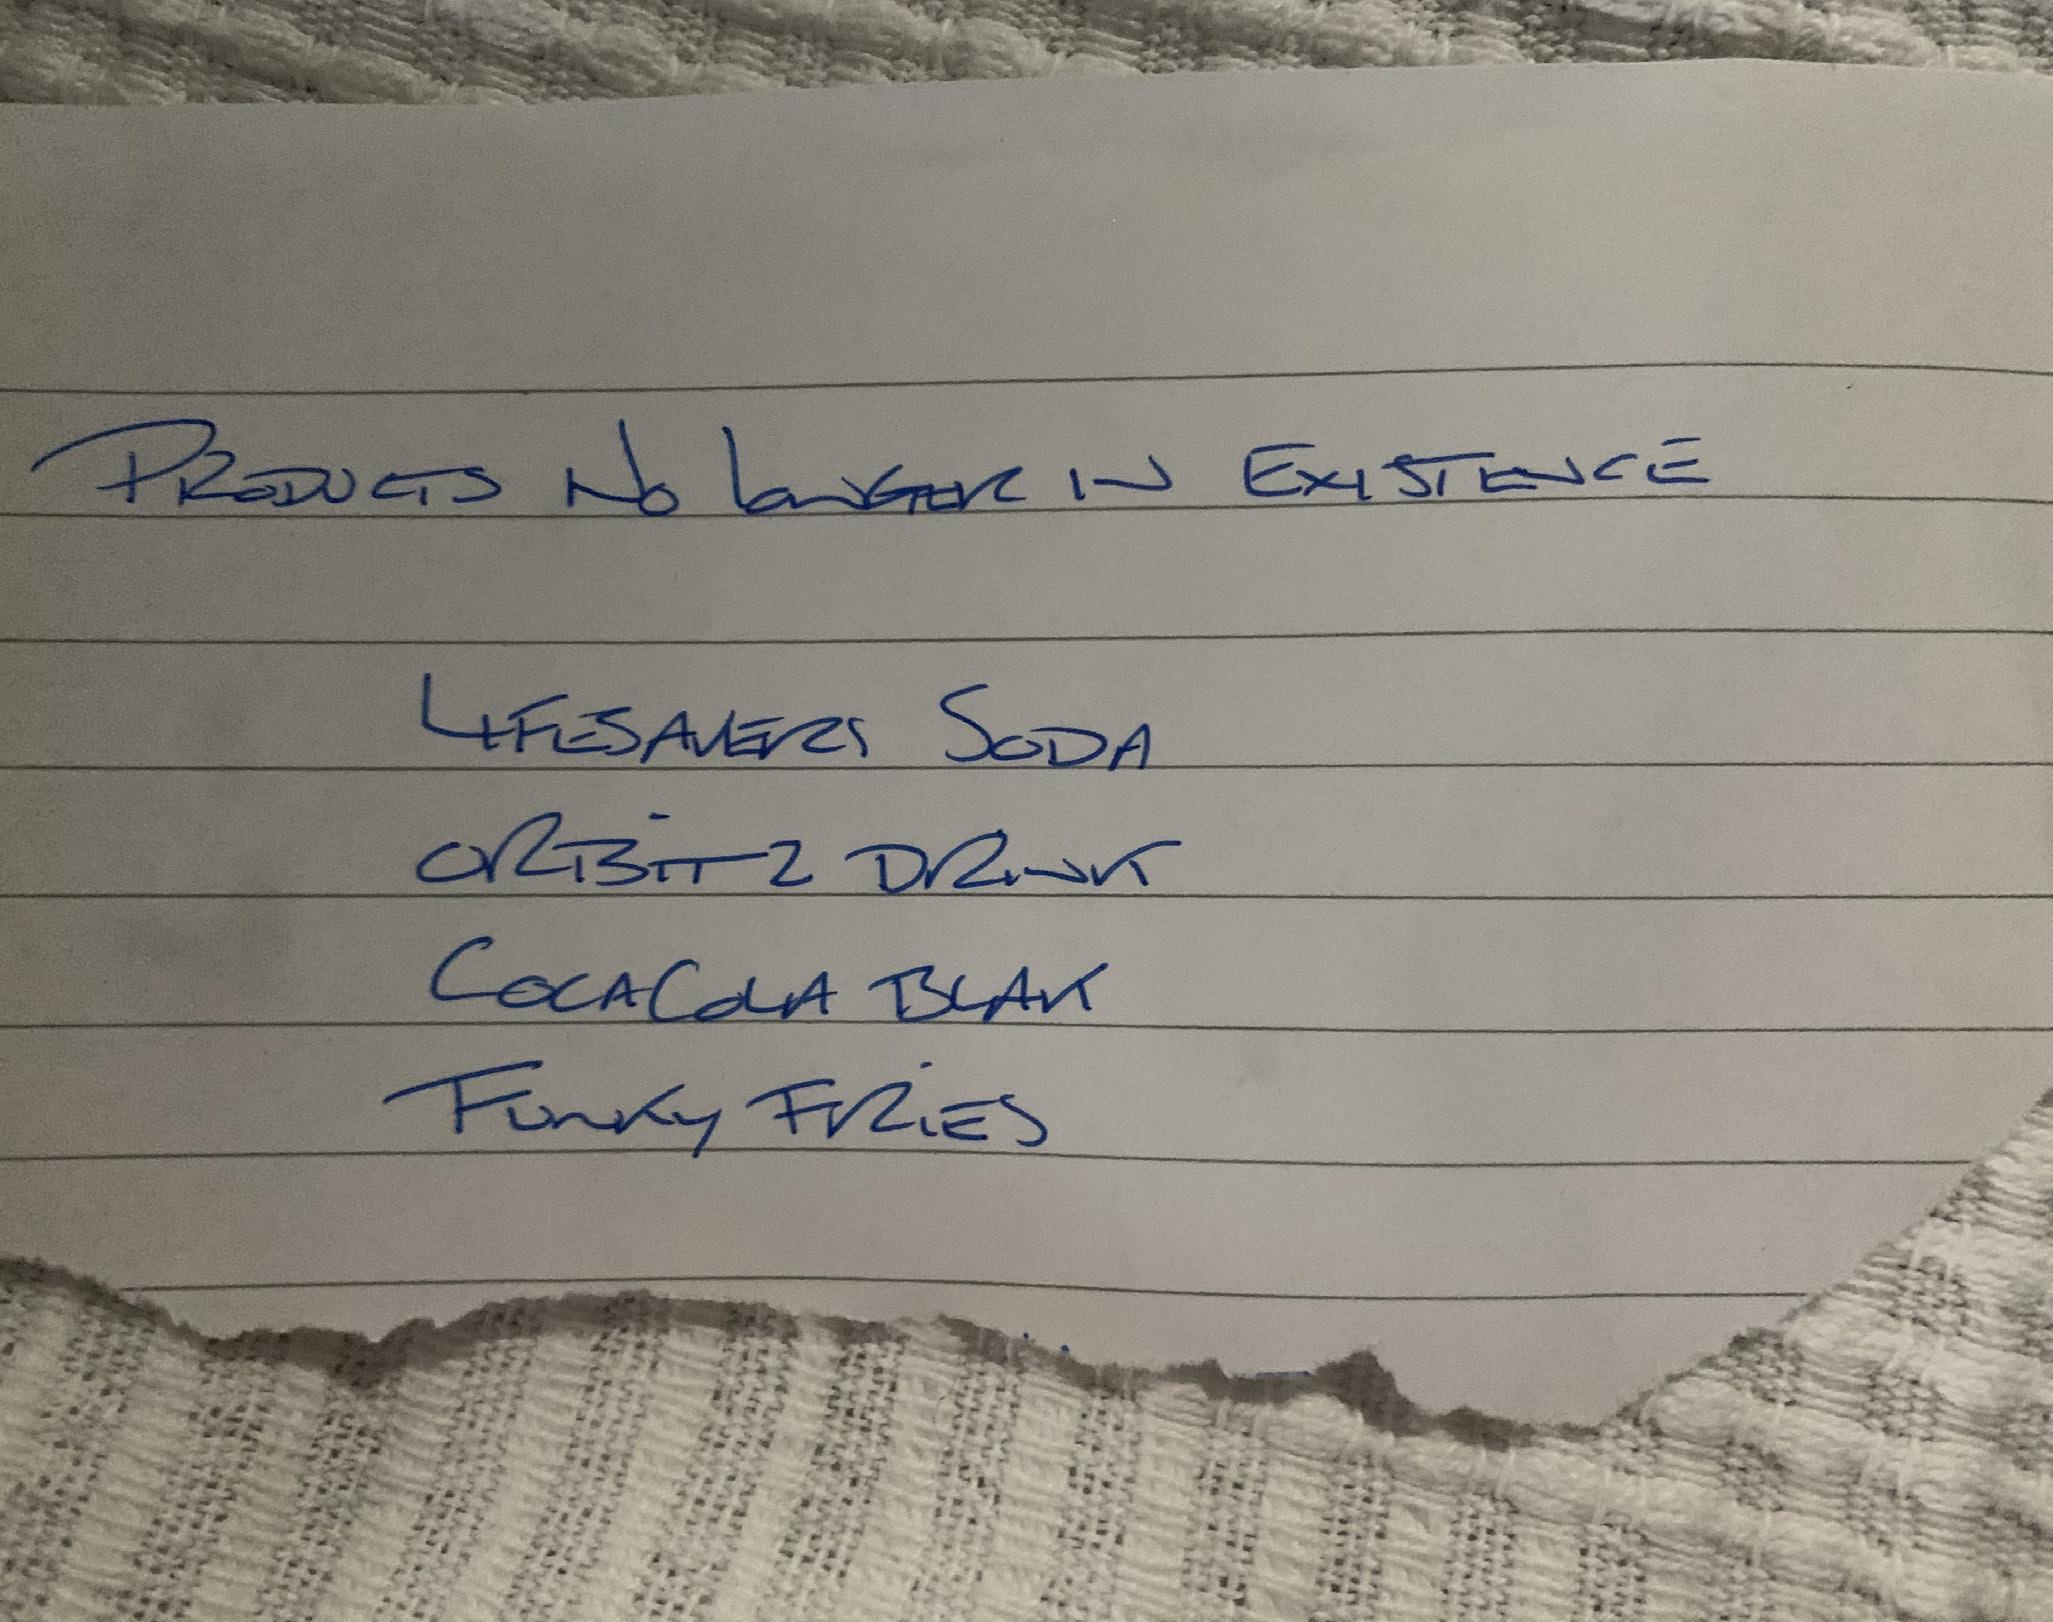 PRODUCTS NO LONGER IN EXISTENCE
LIFESAVERS SODA
ORBITZ DRINK
COCACOLA BLAK
FUNKY FRIES